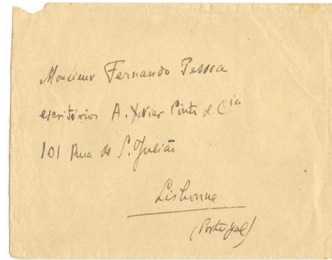 Monsieur Fernando Pessoa
escritórios A. Xavier Pinto & Cia
101 Rua de S. Julião
Lisbonne
(Portugal)